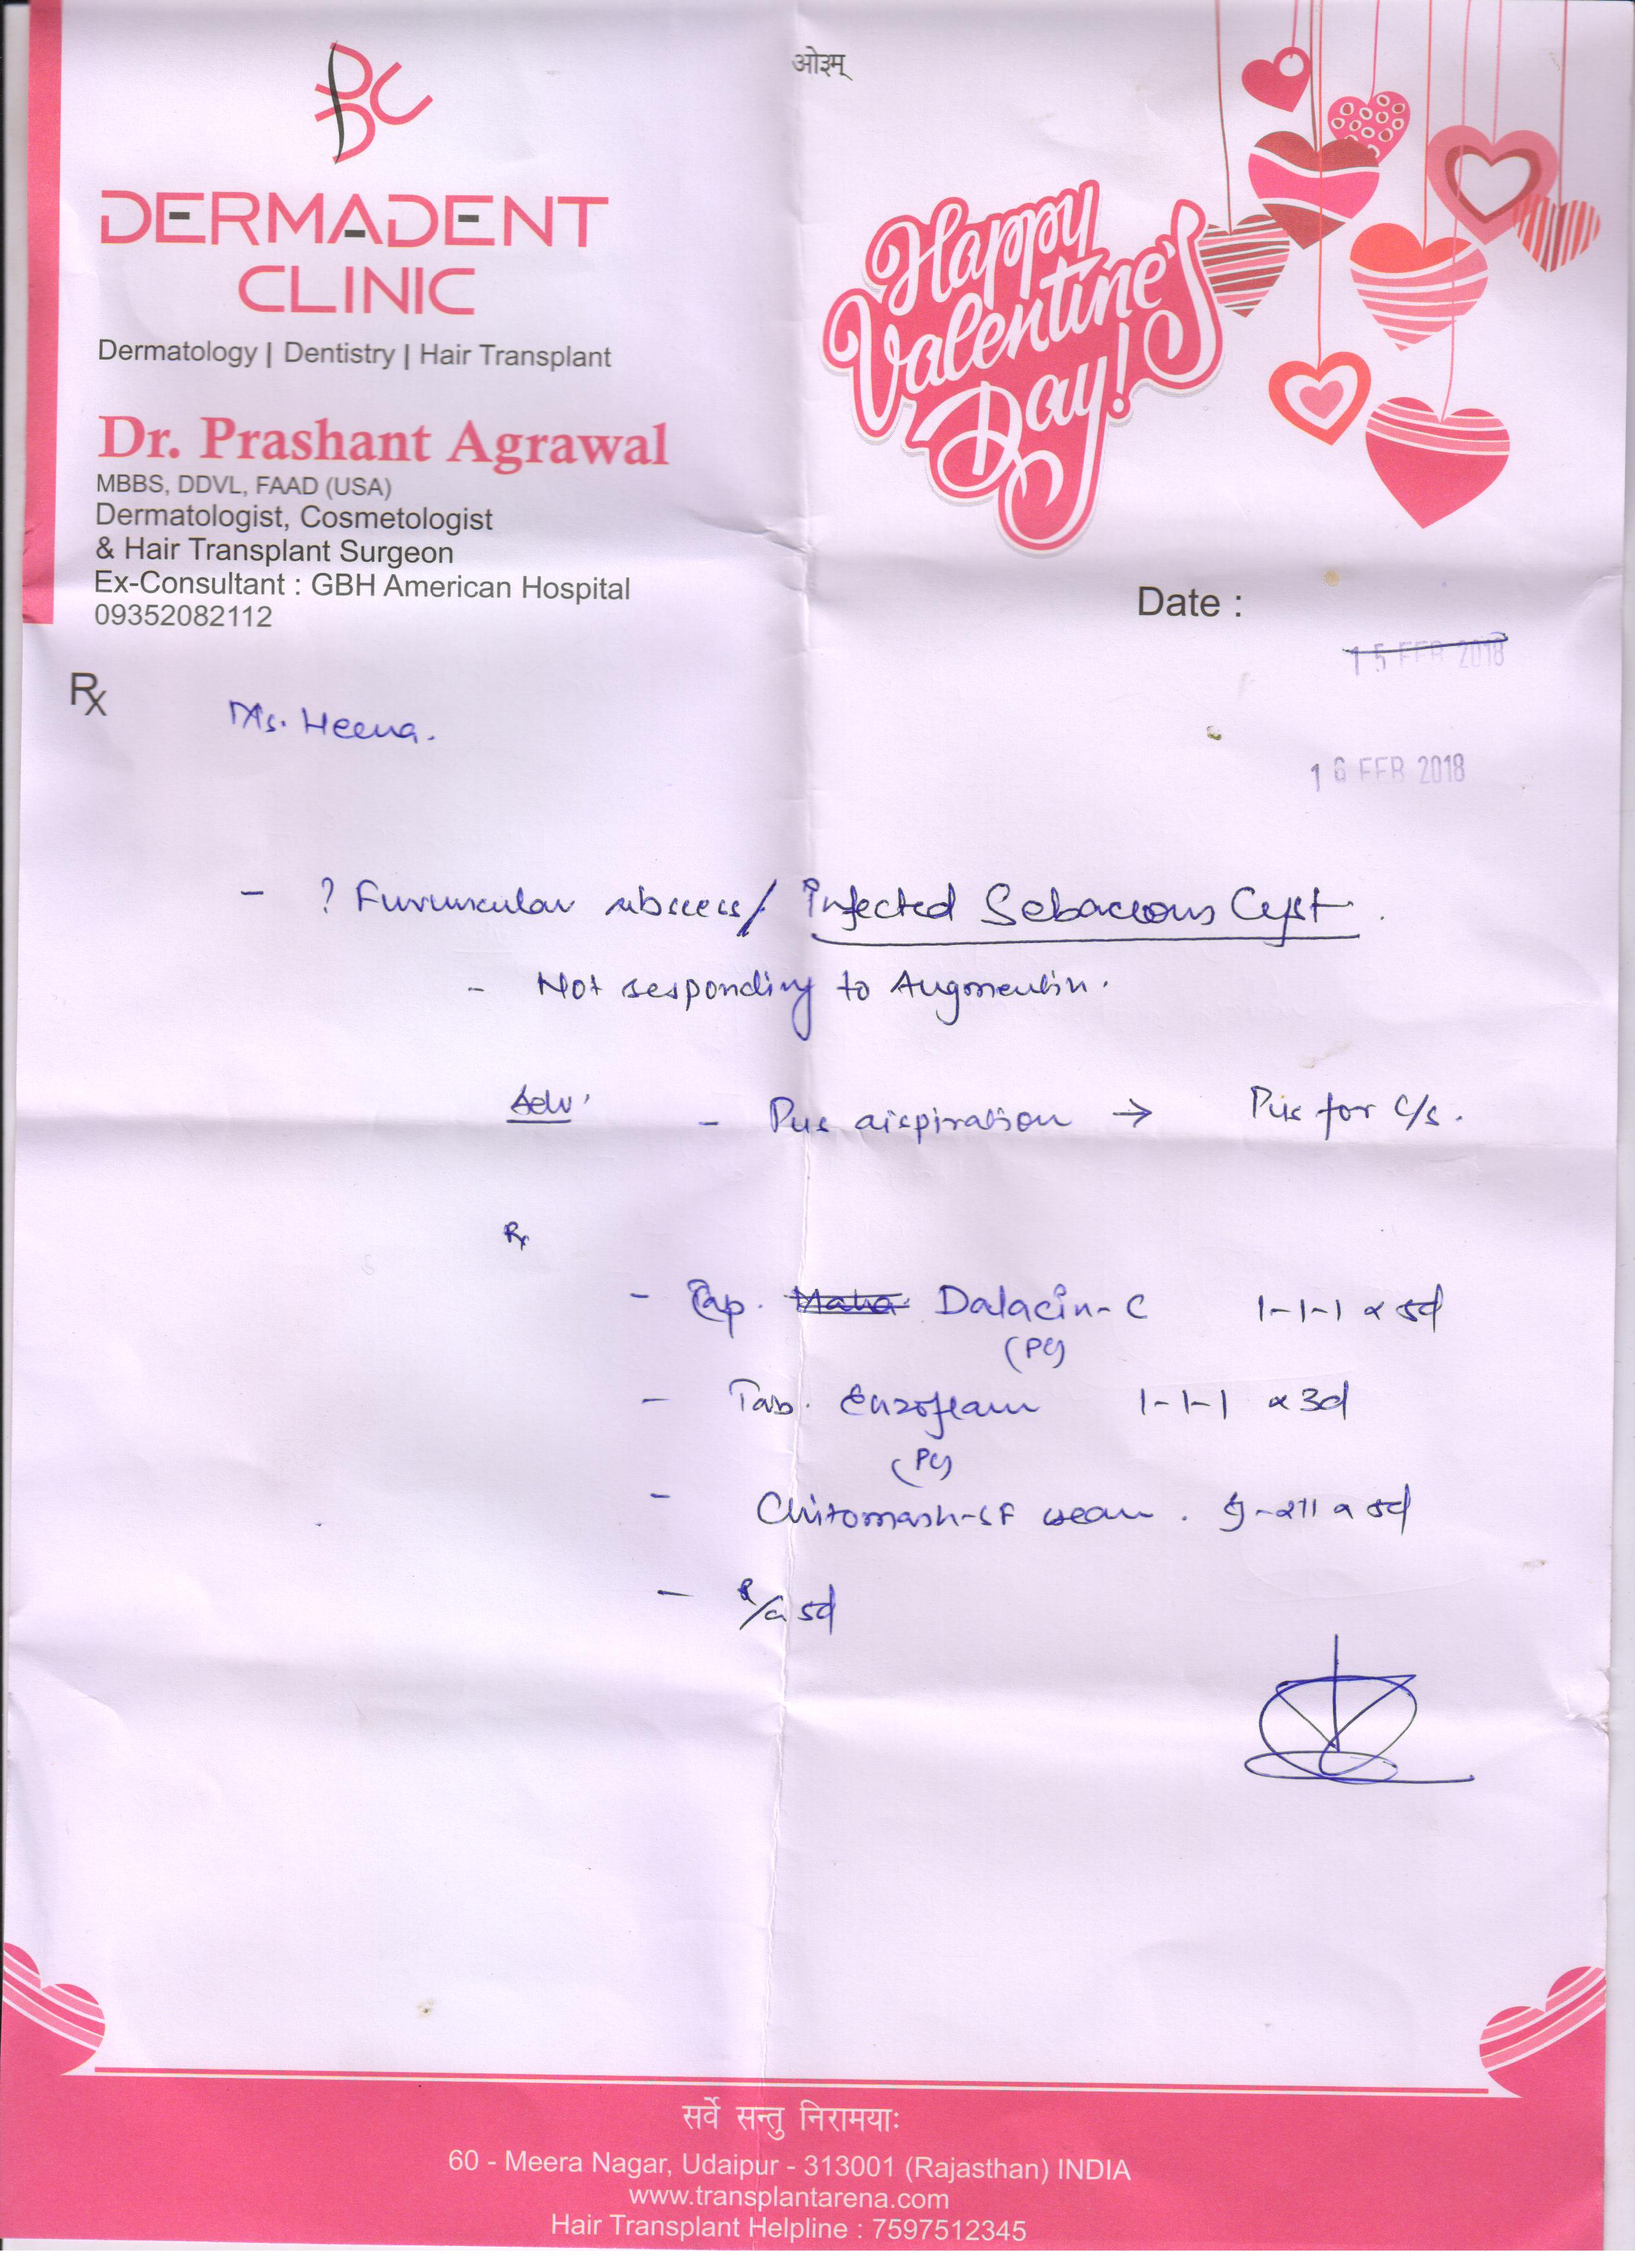 ओ३म्
DERMADENT
CLINIC
Dermatology | Dentistry | Hair Transplant
Happy
Valentine's
Day!
Dr. Prashant Agrawal
MBBS, DDVL, FAAD (USA)
Dermatologist, Cosmetologist
& Hair Transplant Surgeon
Ex-Consultant : GBH American Hospital
09352082112
Date :
15 FEB 2018
16 FEB 2018
Rx
Ms. Heena.
- ? Furuncular abscess / Infected Sebaceous Cyst.
- Not responding to Augmentin.
Adv - Pus aispiration → Pus for C/s.
Rx
- Cap. Dalacin-C 1-1-1 x 5d
(PC)
- Tab. Enzoflam 1-1-1 x 3d
(PC)
- Chitomash-SF cream. x 5d
- R/a 5d
सर्वे सन्तु निरामयाः
60 - Meera Nagar, Udaipur - 313001 (Rajasthan) INDIA
www.transplantarena.com
Hair Transplant Helpline : 7597512345